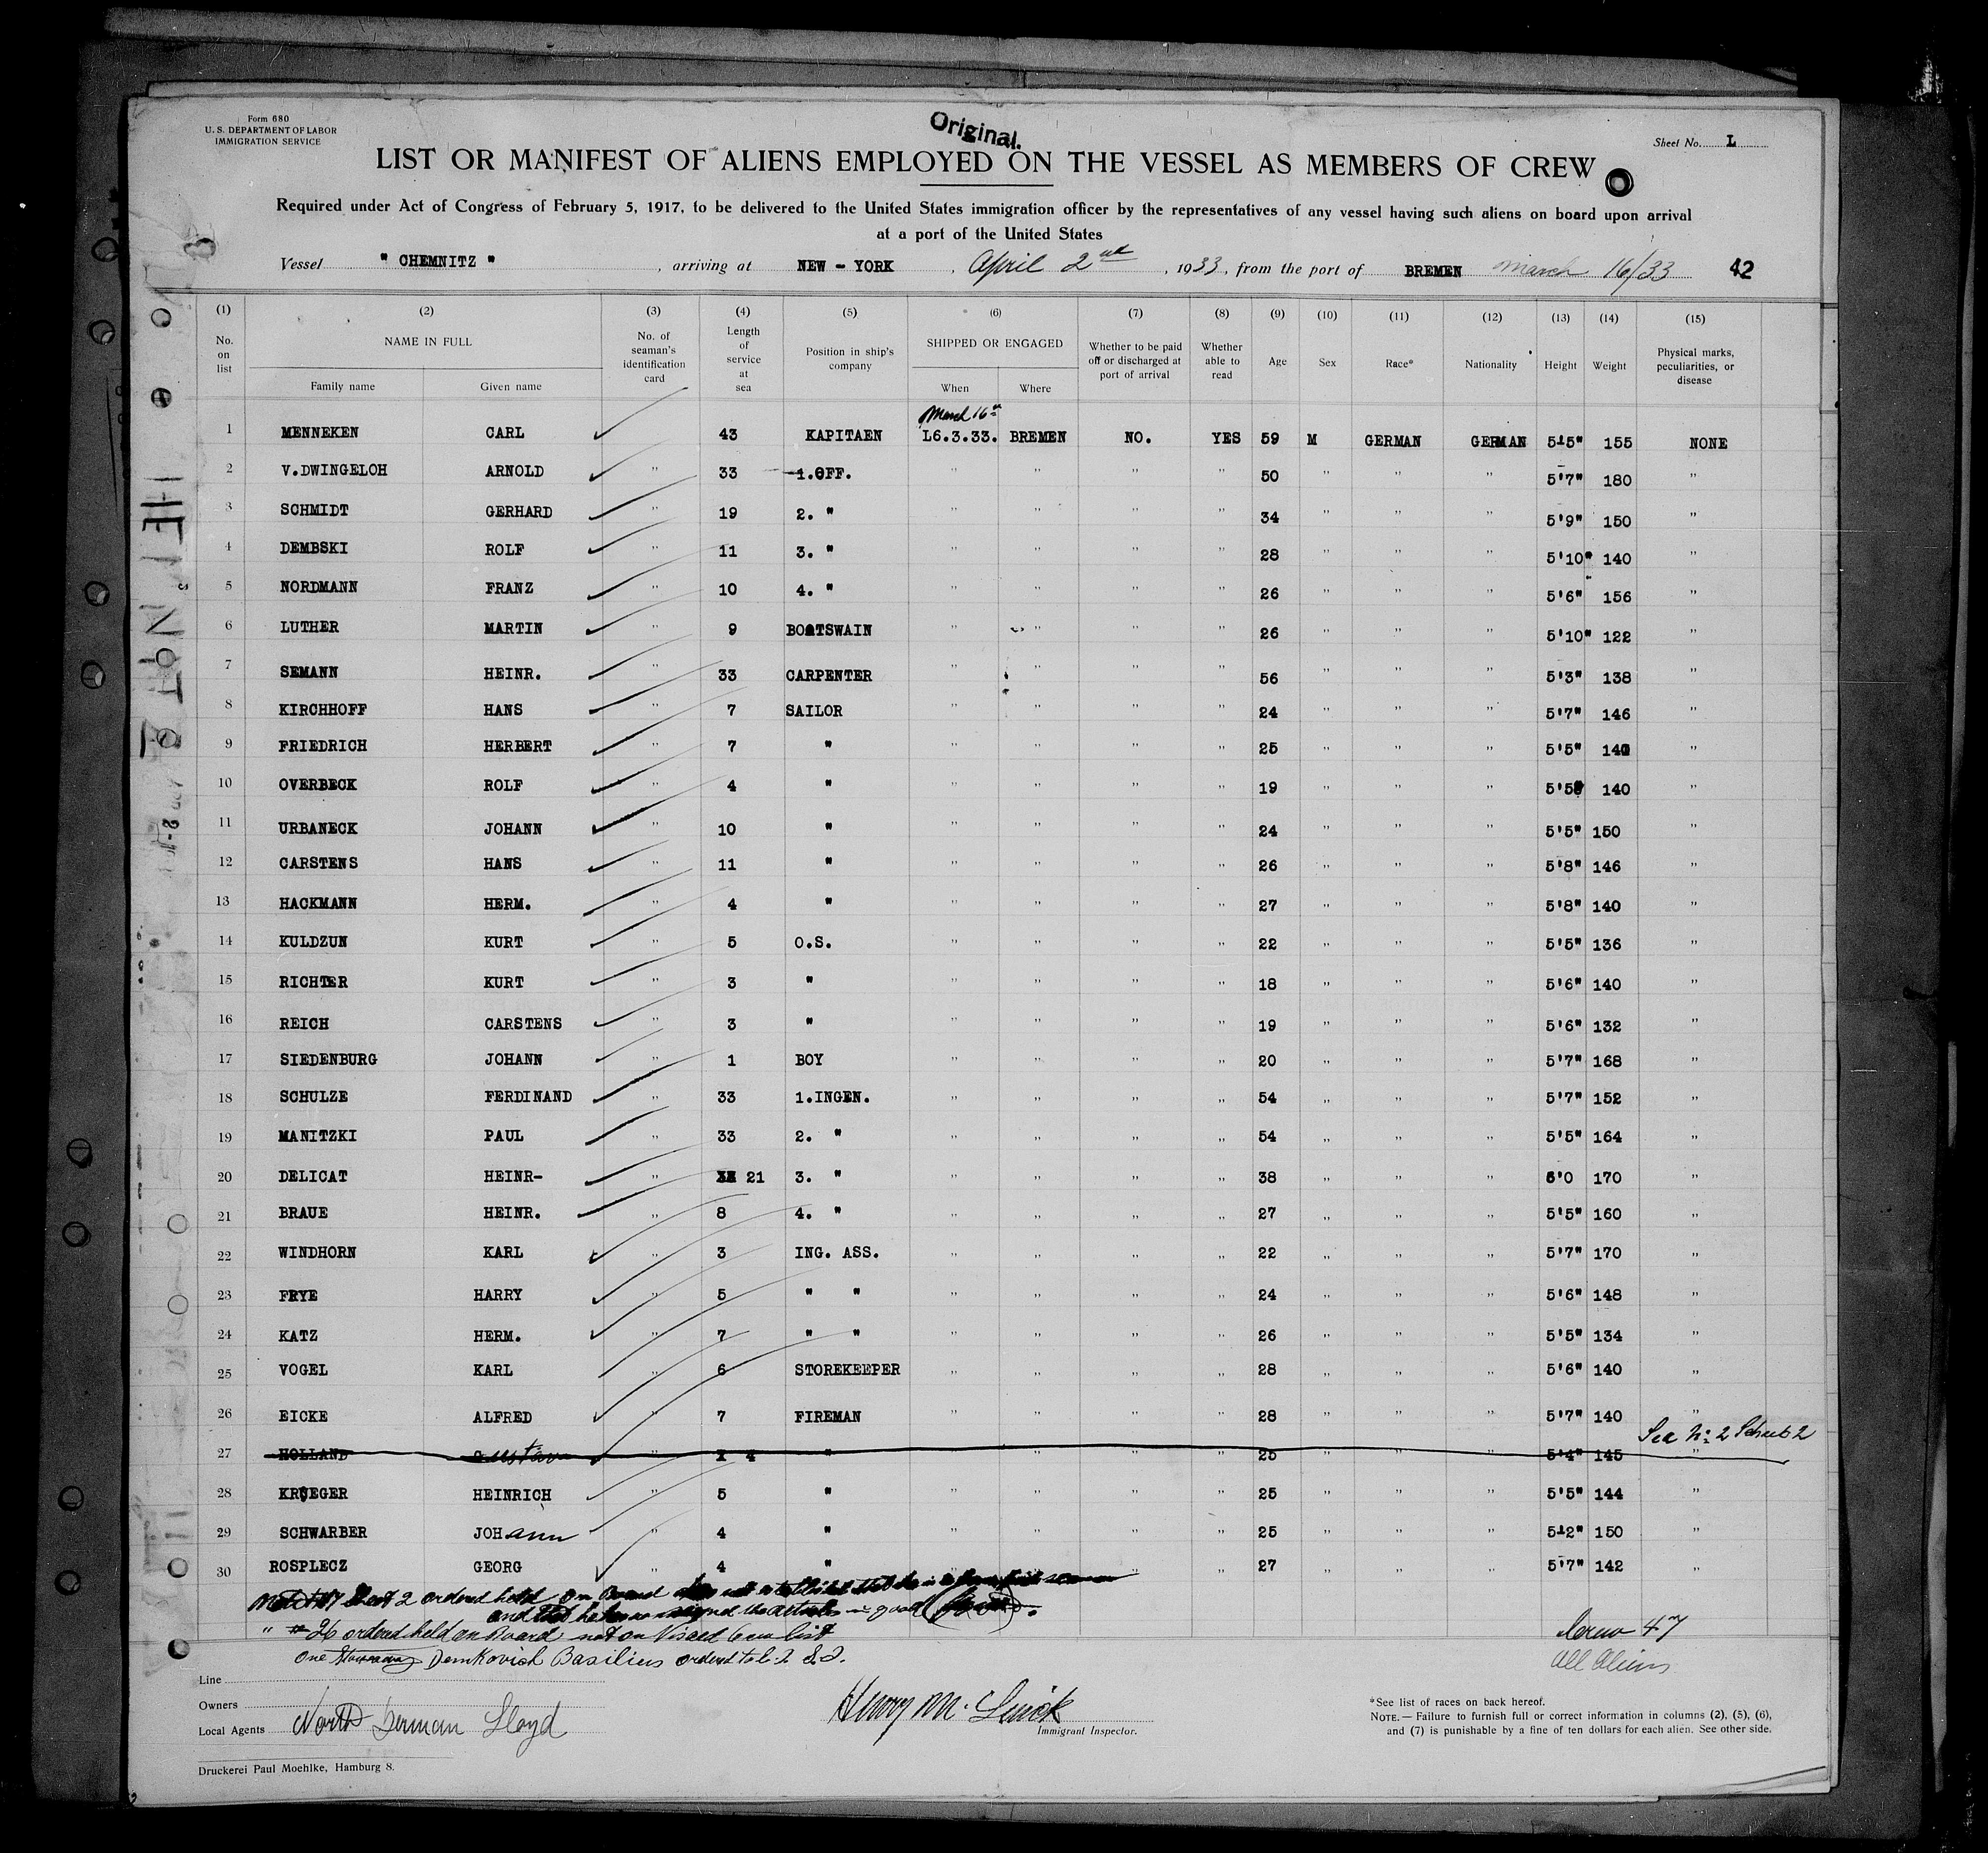 Form 680
U. S. DEPARTMENT OF LABOR
IMMIGRATION SERVICE
Original.
Sheet No. L
LIST OR MANIFEST OF ALIENS EMPLOYED ON THE VESSEL AS MEMBERS OF CREW
Required under Act of Congress of February 5, 1917, to be delivered to the United States immigration officer by the representatives of any vessel having such aliens on board upon arrival
at a port of the United States
Vessel " CHEMNITZ " , arriving at NEW - YORK , April 2nd , 1933, from the port of BREMEN March 16/33 42
(1) (2) (3) (4) (5) (6) (7) (8) (9) (10) (11) (12) (13) (14) (15)
No. on list NAME IN FULL Family name Given name No. of seaman's identification card Length of service at sea Position in ship's company SHIPPED OR ENGAGED When Where Whether to be paid off or discharged at port of arrival Whether able to read Age Sex Race* Nationality Height Weight Physical marks, peculiarities, or disease
March 16
1 MENNEKEN CARL 43 KAPITAEN L6.3.33. BREMEN NO. YES 59 M GERMAN GERMAN 5'5" 155 NONE
2 V.DWINGELOH ARNOLD " 33 1.OFF. " " " " 50 " " " 5'7" 180 "
3 SCHMIDT GERHARD " 19 2. " " " " " 34 " " " 5'9" 150 "
4 DEMBSKI ROLF " 11 3. " " " " " 28 " " " 5'10" 140 "
5 NORDMANN FRANZ " 10 4. " " " " " 26 " " " 5'6" 156 "
6 LUTHER MARTIN " 9 BOATSWAIN " " " " 26 " " " 5'10" 122 "
7 SEMANN HEINR. " 33 CARPENTER " " " " 56 " " " 5'3" 138 "
8 KIRCHHOFF HANS " 7 SAILOR " " " " 24 " " " 5'7" 146 "
9 FRIEDRICH HERBERT " 7 " " " " " 25 " " " 5'5" "
10 OVERBECK ROLF " 4 " " " " " 19 " " " 5'5" 140 "
11 URBANECK JOHANN " 10 " " " " " 24 " " " 5'5" 150 "
12 CARSTENS HANS " 11 " " " " " 26 " " " 5'8" 146 "
13 HACKMANN HERM. " 4 " " " " " 27 " " " 5'8" 140 "
14 KULDZUN KURT " 5 O.S. " " " " 22 " " " 5'5" 136 "
15 RICHTER KURT " 3 " " " " " 18 " " " 5'6" 140 "
16 REICH CARSTENS " 3 " " " " " 19 " " " 5'6" 132 "
17 SIEDENBURG JOHANN " 1 BOY " " " " 20 " " " 5'7" 168 "
18 SCHULZE FERDINAND " 33 1.INGEN. " " " " 54 " " " 5'7" 152 "
19 MANITZKI PAUL " 33 2. " " " " " 54 " " " 5'5" 164 "
20 DELICAT HEINR- " 21 3. " " " " " 38 " " " 6'0 170 "
21 BRAUE HEINR. " 8 4. " " " " " 27 " " " 5'5" 160 "
22 WINDHORN KARL " 3 ING. ASS. " " " " 22 " " " 5'7" 170 "
23 FRYE HARRY " 5 " " " " " " 24 " " " 5'6" 148 "
24 KATZ HERM. " 7 " " " " " " 26 " " " 5'5" 134 "
25 VOGEL KARL " 6 STOREKEEPER " " " " 28 " " " 5'6" 140 "
26 EICKE ALFRED " 7 FIREMAN " " " " 28 " " " 5'7" 140 "
See No 2 Scheet 2
27 HOLLAND Gustav " 4 " " " " " 25 " " " 5'4" 145 "
28 KRUEGER HEINRICH " 5 " " " " " 25 " " " 5'5" 144 "
29 SCHWARBER JOHann " 4 " " " " " 25 " " " 5'2" 150 "
30 ROSPLECZ GEORG " 4 " " " " " 27 " " " 5'7" 142 "
2 ordered held on Board
and that he signed the articles in good
" # 26 ordered held on Board not on Visaed Crew list
One Demkovich Basilius ordered to
Crew 47
All Aliens
Line
Owners
Local Agents North German Lloyd
Henry M.
Immigrant Inspector.
*See list of races on back hereof.
NOTE.— Failure to furnish full or correct information in columns (2), (5), (6),
and (7) is punishable by a fine of ten dollars for each alien. See other side.
Druckerei Paul Moehlke, Hamburg 8.